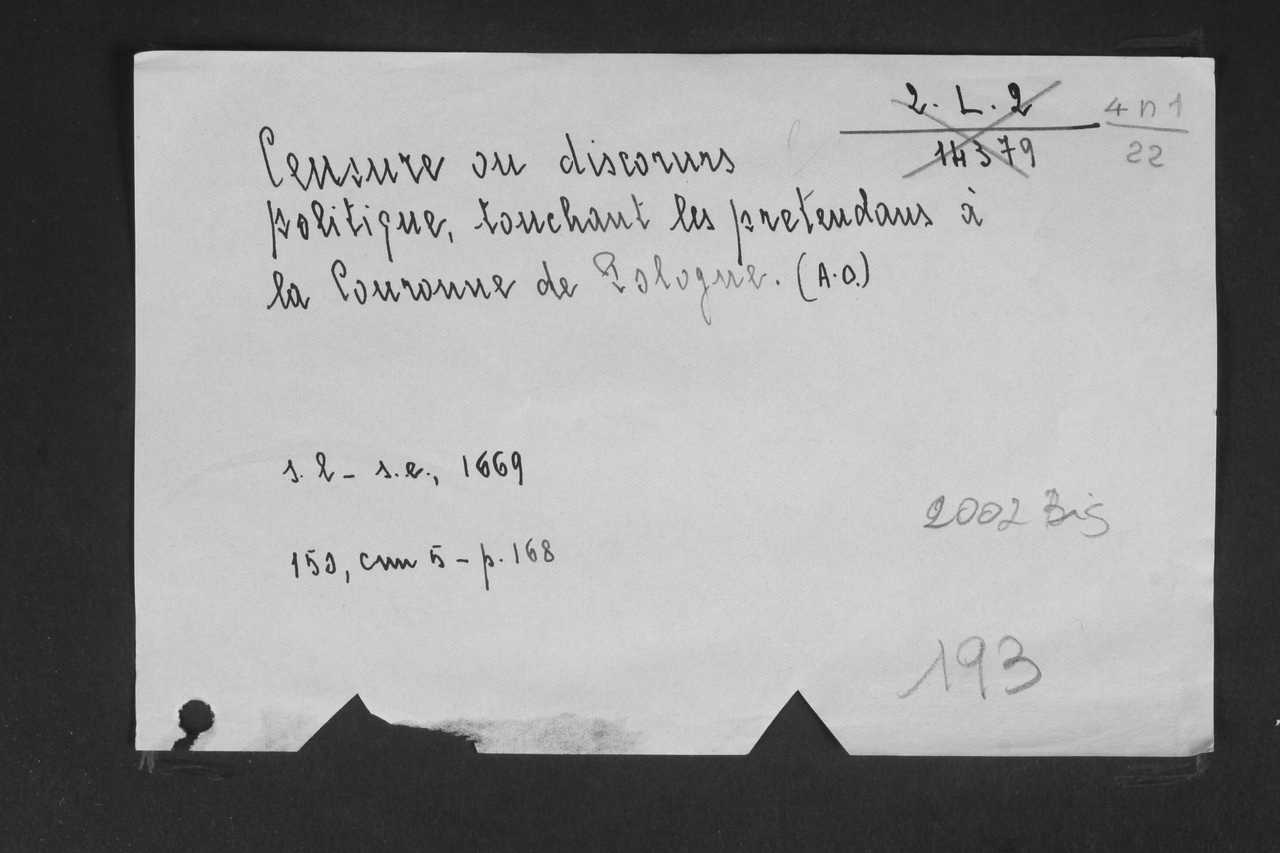 2. L. 2
14379
4 n 1
22
Censure ou discorurs
politique, touchant les pretendans à
la Couronne de Pologne. (A.O.)
s. l - s.e., 1669
150, cm 5 - p. 168
2002 Bis
193